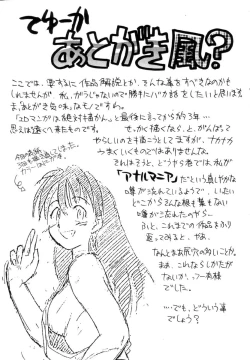 てゆーか
あとがき風?
ここでは、要するに作品解説とか、そんな事をすべきなのかも
しれませんが、私、がらじゃないので勝手にバカ話をしたいと思います。
ま、あとがき気味なものですね。
「エロマンガは絶対描かん。」と最後に言ってから3年…
思えば遠くへ来たものです。
せっかく描くなら、と、がんばって
やらしいのを描こうとしてますが、ナカナカ
うまくいくものではありませんな。
それはそうと、どうやら巷では、私が
「アナルマニア」だという真しやかな
噂が流れているようで、いたい
どこからそんな根も葉もない
噂が立ったのやら…
ふと、これまでの作品をふり
返ってみると、
なんとまあ尻穴の多いことか。
まあ、これならしかたが
ないか…
…でも、どういう事
でしょう?